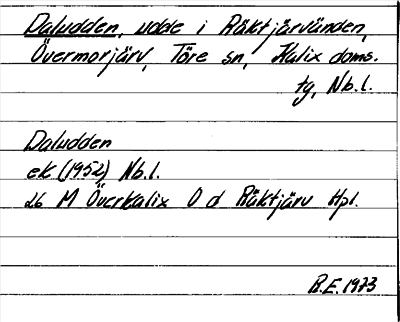 Daludden, udde i Räktjärvånden,
Övermorjärv, Töre sn, Kalix doms.
tg, Nb.l.
Daludden
ek (1952) Nb.l.
26 M Överkalix O d Räktjärv Hpl.
R.E. 1973